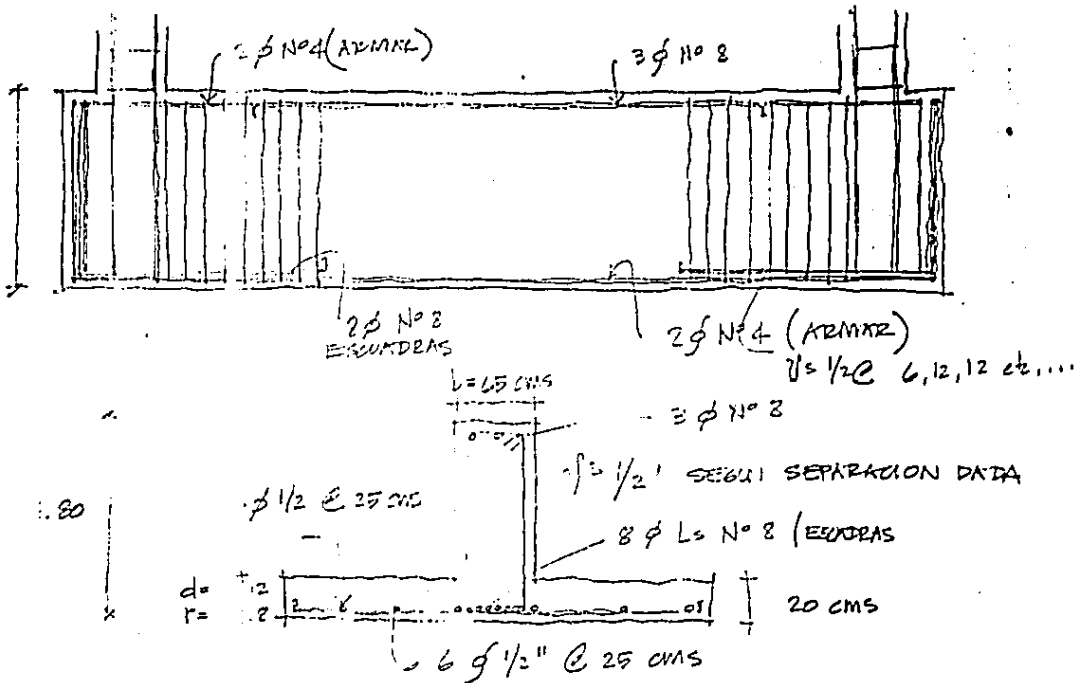 2 ϕ Nº4 (ARMAR)
3 ϕ Nº 8
2 ϕ Nº 8
ESCUADRAS
2 ϕ Nº 4 (ARMAR)
1/2 @ 6, 12, 12 etc,...
L=65 cms
3 ϕ Nº 8
1/2" SEGUN SEPARACION DADA
.80
ϕ 1/2 @ 25 cms
8 ϕ Ls Nº 8 /ESCUADRAS
d= 12
r= 8
20 cms
6 ϕ 1/2" @ 25 cms